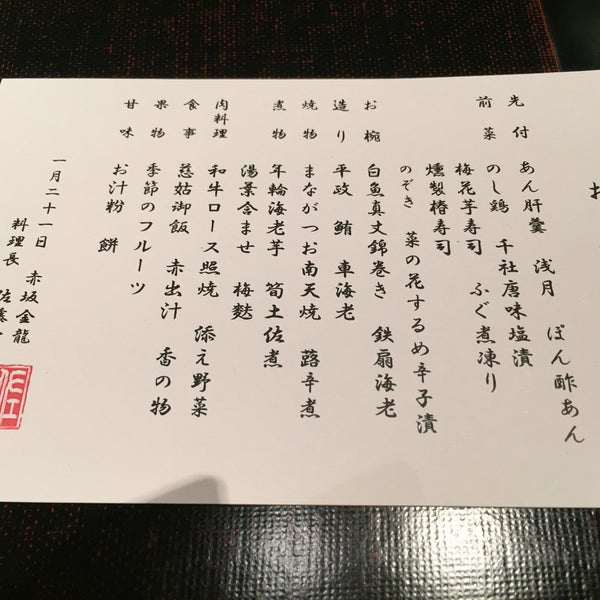 お
先付 あん肝羹 浅月 ぽん酢あん
前菜 のし鶏 千社唐味塩漬
梅花芋寿司 ふぐ煮凍り
燻製椿寿司
のぞき 菜の花するめ辛子漬
お椀 白魚真丈錦巻き 鉄扇海老
造り 平政 鮪 車海老
焼物 まながつお南天焼 蕗辛煮
煮物 年輪海老芋 筍土佐煮
湯葉含ませ 梅麩
肉料理 和牛ロース照焼 添え野菜
食事 慈姑御飯 赤出汁 香の物
果物 季節のフルーツ
甘味 お汁粉 餅
一月二十一日 赤坂金龍
料理長 佐藤